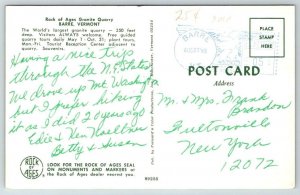 Rock of Ages Granite Quarry
BARRE, VERMONT
The World's largest granite quarry — 350 feet
deep. Visitors ALWAYS welcome. Free guided
quarry tours daily May 1-Oct. 31, plant tours,
Mon.-Fri. Tourist Reception Center adjacent to
quarry. Souvenirs.
Having a nice trip
through the N.E. States
We drove up Mt Washington
but I
it as I did 20 years ago
Edie & Van
Betty & Susan
ROCK
OF
AGES
LOOK FOR THE ROCK OF AGES SEAL
ON MONUMENTS AND MARKERS at
the Rock of Ages dealer nearest you.
25¢
BARRE
PLACE
STAMP
HERE
POST CARD
Mr. & Mrs. Frank
Brandon
Fultonville
New York
12072